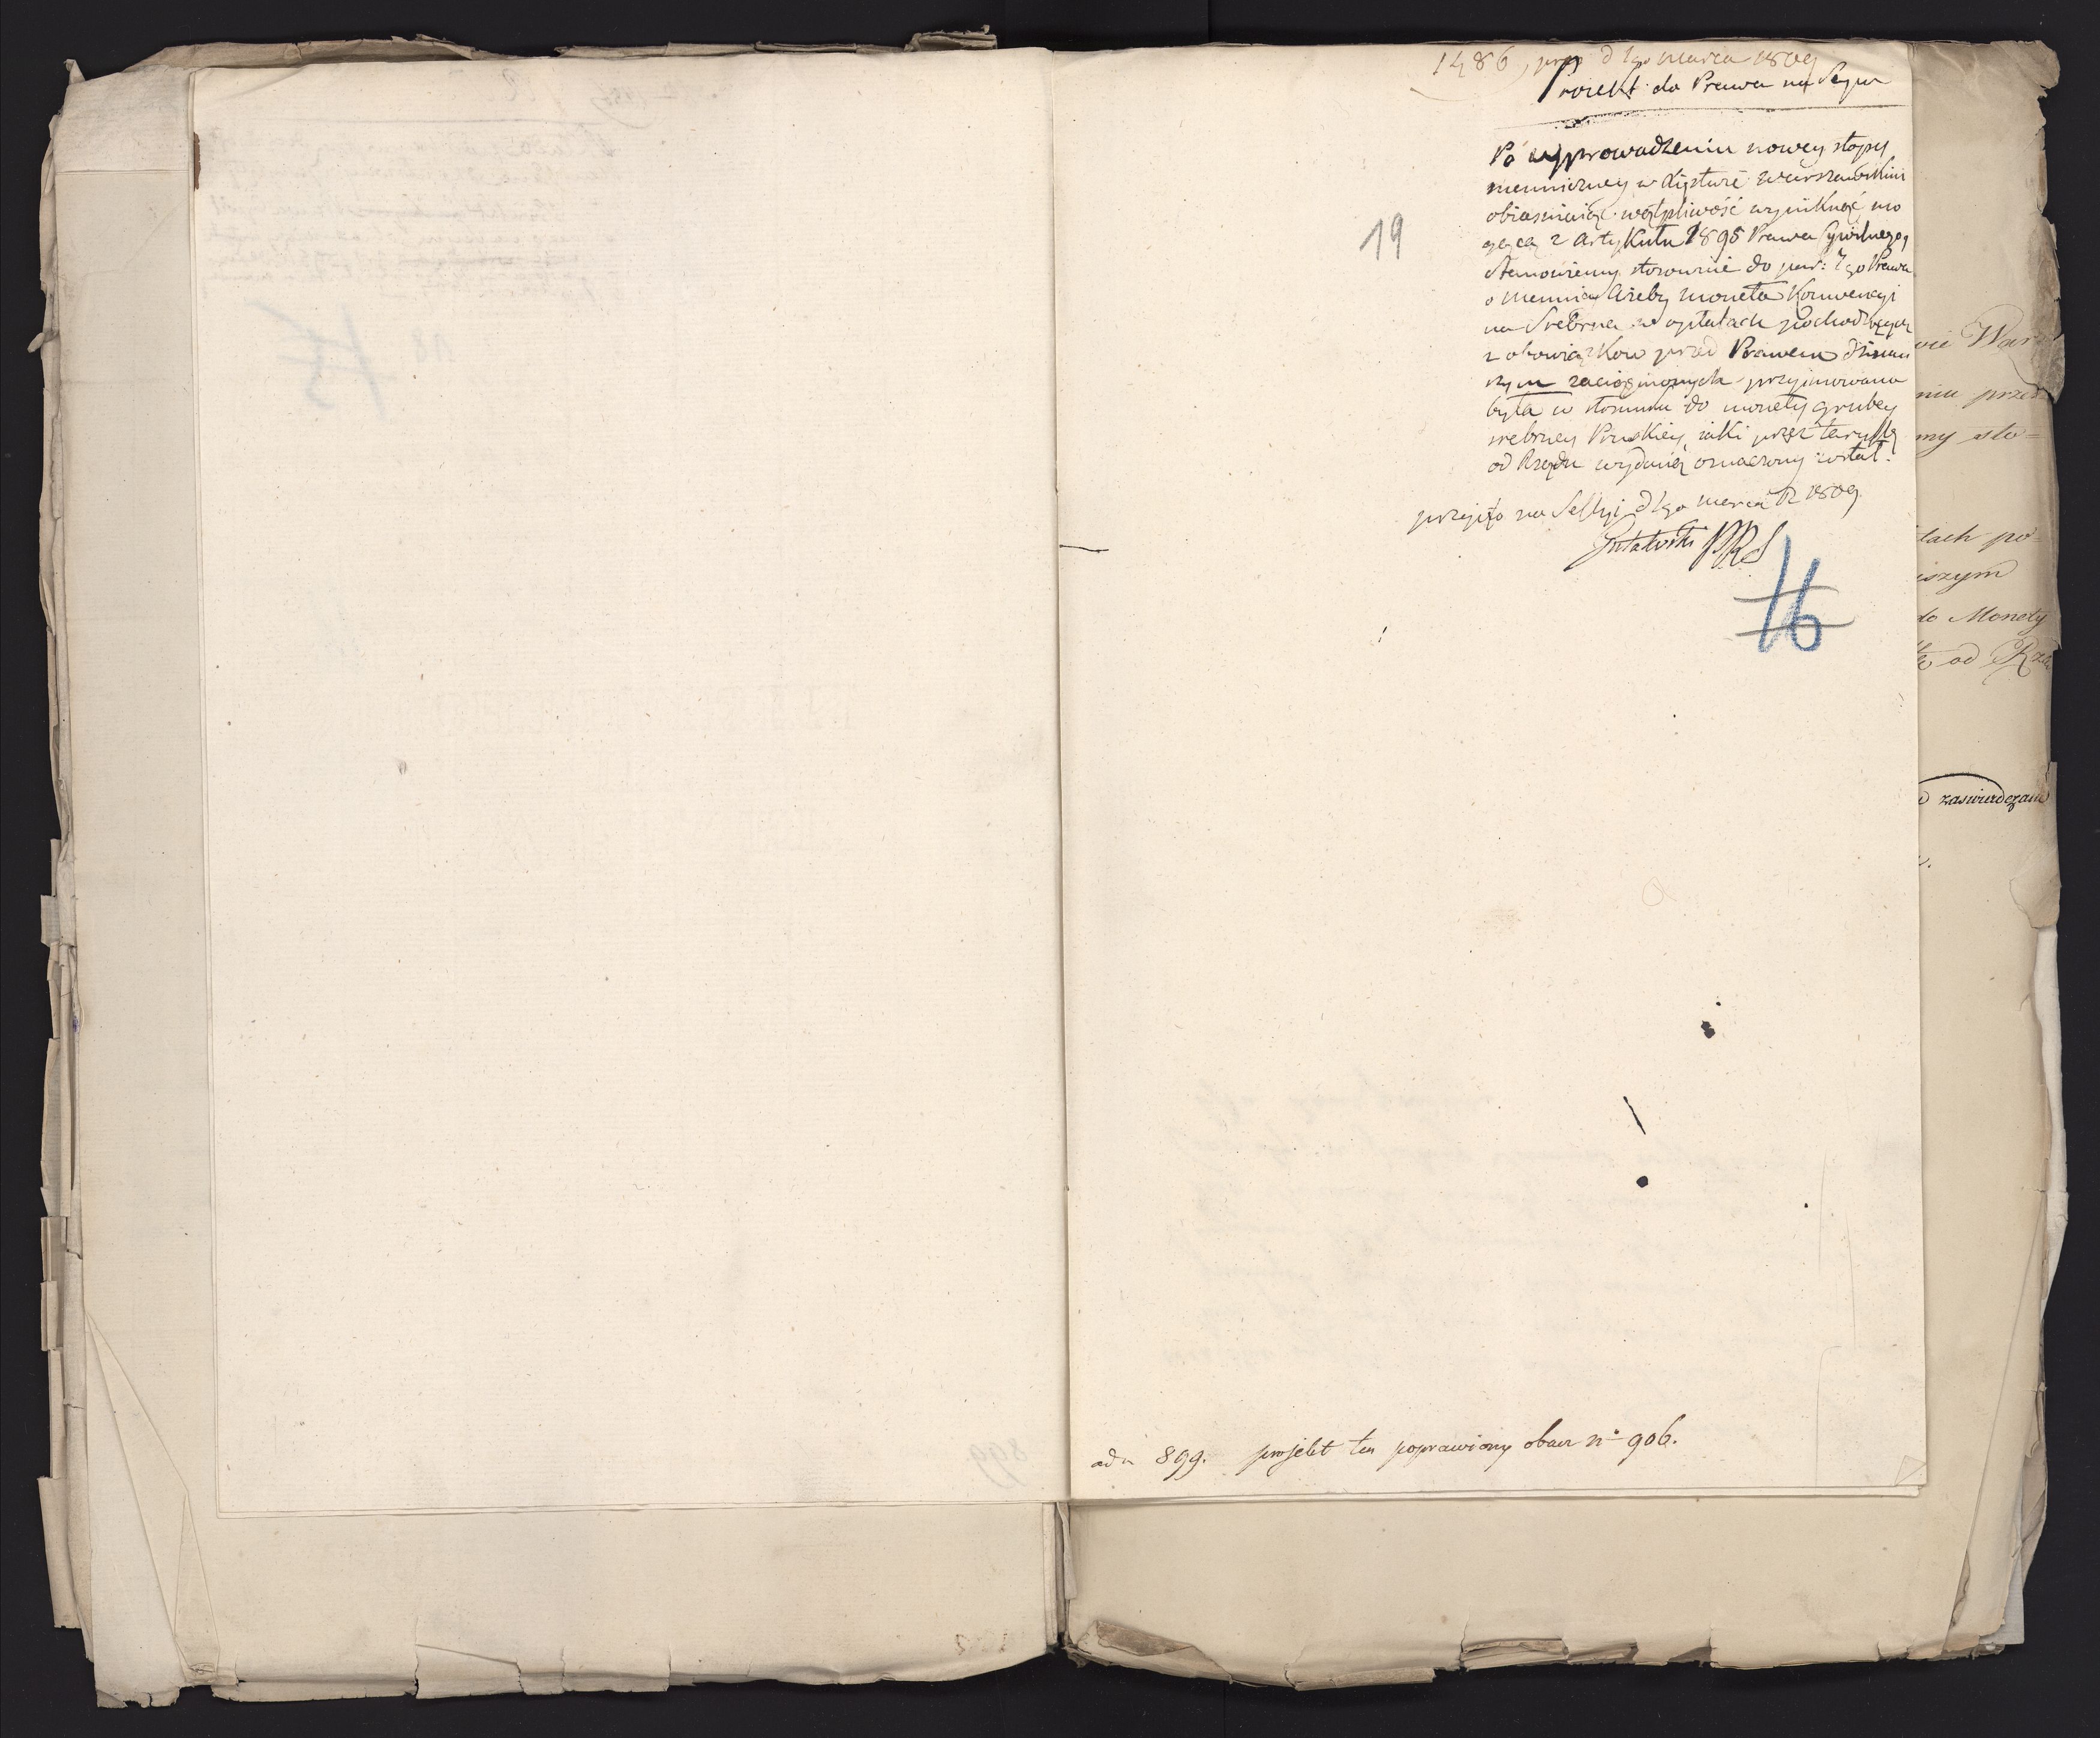 1486, pres d 1go Marca 1809
Proiekt do Prawa na Seym
19
Po wyprowadzeniu nowey stopy
menniczney w Xięstwie Warszawskim
obiasniaiąc wątpliwość wyniknąć mo
gącą z Artykułu 1895 Prawa Cywilnego,
stanowiemy stosownie do par: 7go Prawa
o mennicy Ażeby moneta Konwencyi
na Srebrna w opłatach pochodzących
z obowiązkow przed Prawem dzisiey
szym zaciągnionych przyimowana
była w stosunku do monety grubey
srebrney Pruskiey, iaki przez taryffę
od Rządu wydaną oznaczony został.
przyięto na Sessyi d 1go marca R 1809
PRS
16
ad n 899. projekt ten poprawiony obacz no 906.
wie Wars
niu przed
my sto=
łach po=
iszym
do Monety
od Rzą
zaswiadczam